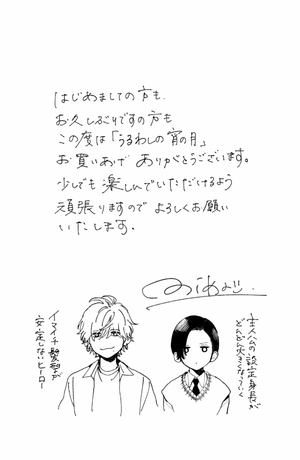 はじめましての方も、
お久しぶりですの方も
この度は「うるわしの宵の月」
お買いあげ ありがとうございます。
少しでも 楽しんでいただけるよう
頑張りますので よろしくお願い
いたします.
主人公の設定身長が
どんどん大きくなっていく
イマイチ髪型が
安定しないヒーロー